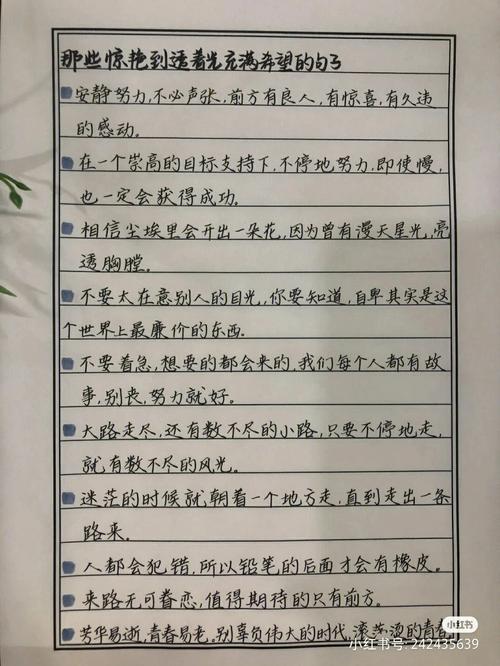 那些惊艳到透着光充满希望的句子
安静努力,不必声张,前方有良人,有惊喜,有久违
的感动。
在一个崇高的目标支持下,不停地努力,即使慢,
也一定会获得成功。
相信尘埃里会开出一朵花,因为曾有漫天星光,亮
透胸膛。
不要太在意别人的目光,你要知道,自卑其实是这
个世界上最廉价的东西.
不要着急,想要的都会来的,我们每个人都有故
事,别丧,努力就好。
大路走尽,还有数不尽的小路,只要不停地走,
就有数不尽的风光。
迷茫的时候就朝着一个地方走,直到走出一条
路来。
人都会犯错,所以铅笔的后面才会有橡皮。
来路无可眷恋,值得期待的只有前方。
芳华易逝,青春易老。别辜负伟大的时代,滚荡烫的青春
小红书
小红书号: 242435639